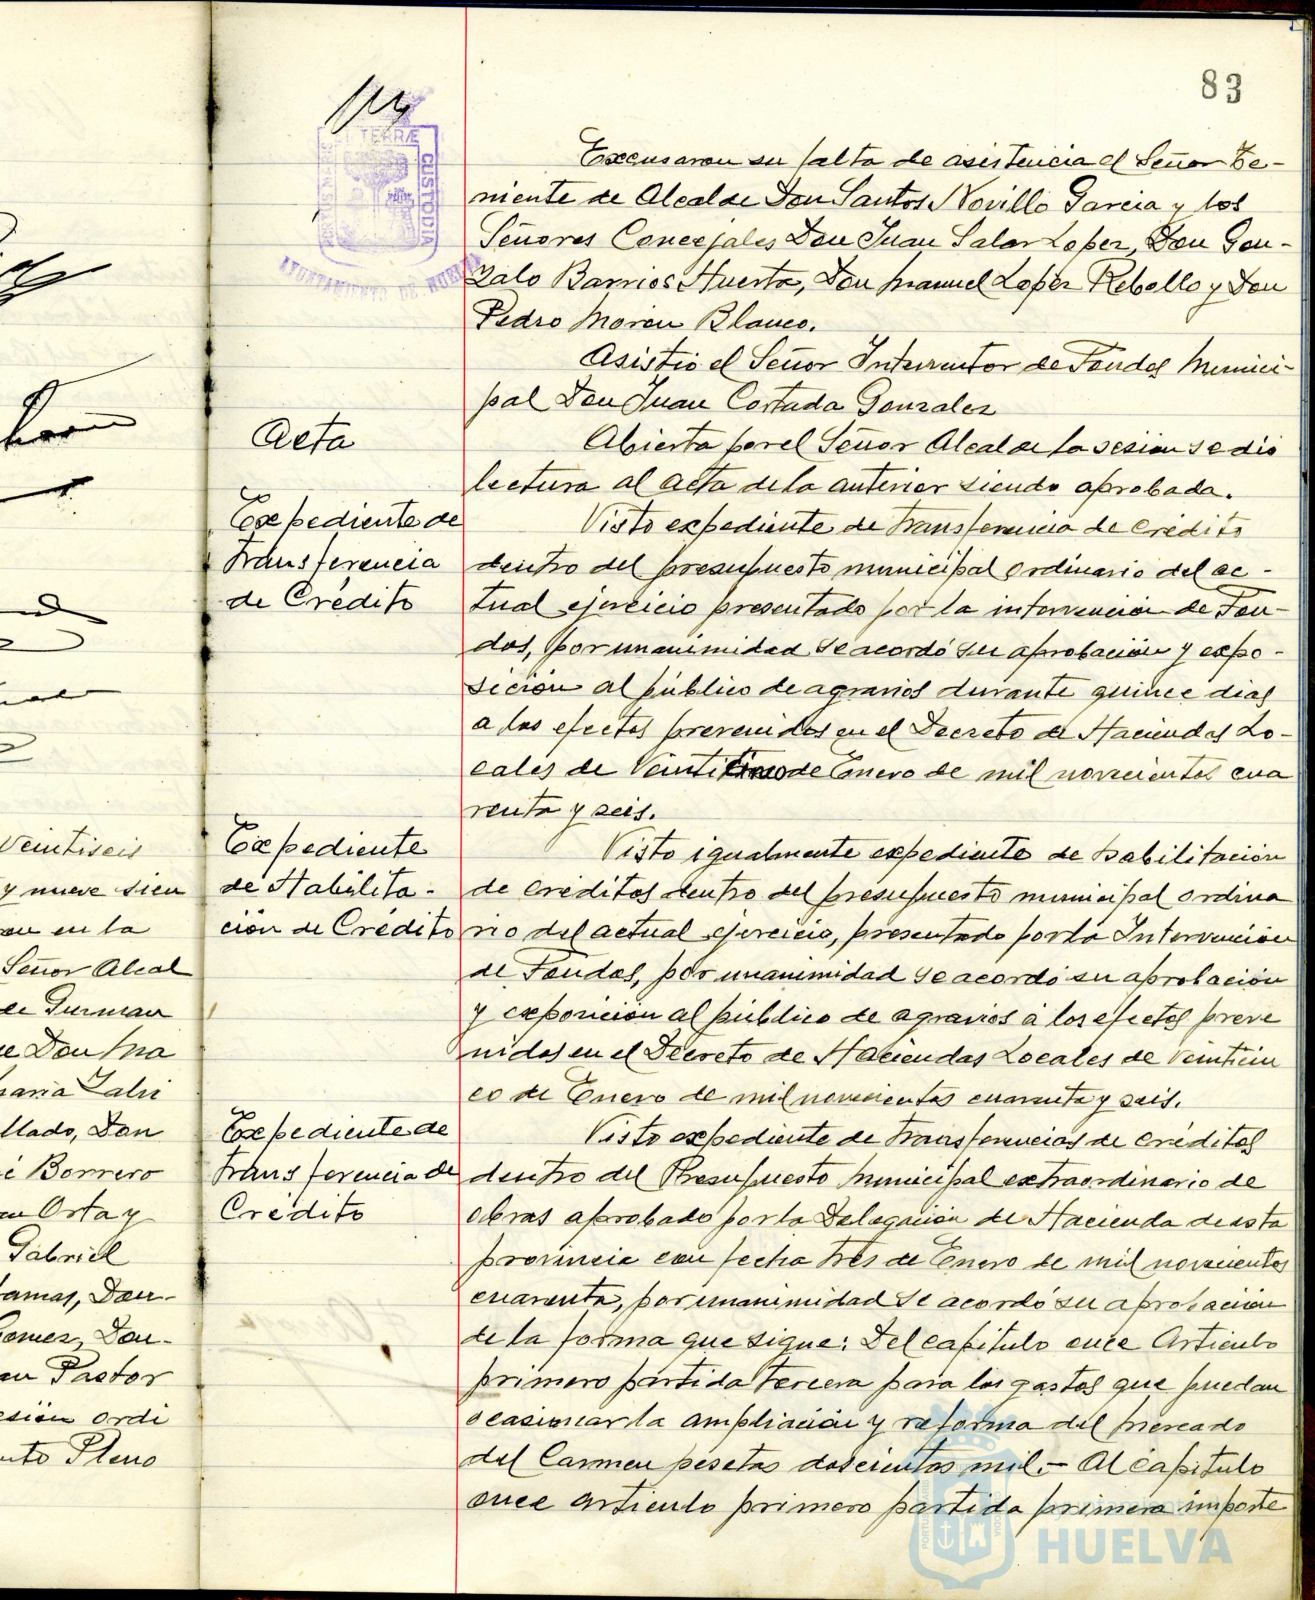 83
PORTUS MARIS
ET TERRÆ
CUSTODIA
AYUNTAMIENTO DE HUELVA
Veintiseis
y nueve sien
en la
Señor Alcal
de Guzman
Don Ma
Maria Zalvi
llado, Don
Borrero
Orta y
Gabriel
Damas, Don-
Gomez, Don-
Pastor
ordi
Pleno
Acta
Expediente de
transferencia
de Crédito
Expediente
de Habilita-
ción de Crédito
Expediente de
transferencia de
Crédito
Excusaron su falta de asistencia el Señor Te-
niente de Alcalde Don Santos Novillo Garcia y los
Señores Concejales Don Juan Salas Lopez, Don Gon-
zalo Barrios Huerta, Don Manuel Lopez Rebollo y Don
Pedro Moron Blanco.
Asistió el Señor Interventor de Fondos Munici-
pal Don Juan Cortada Gonzalez
Abierta por el Señor Alcalde la sesion se dió
lectura al acta de la anterior siendo aprobada.
Visto expediente de transferencia de crédito
dentro del presupuesto municipal ordinario del ac-
tual ejercicio presentado por la intervención de Fon-
dos, por unanimidad se acordó su aprobación y expo-
sición al público de agravios durante quince dias
a los efectos prevenidos en el Decreto de Haciendas Lo-
cales de Veinticinco de Enero de mil novecientos cua
renta y seis.
Visto igualmente expediente de habilitación
de créditos dentro del presupuesto municipal ordina
rio del actual ejercicio, presentado por la Intervención
de Fondos, por unanimidad se acordó su aprobación
y exposición al público de agravios á los efectos preve
nidos en el Decreto de Haciendas Locales de Veinticin
co de Enero de mil novecientos cuarenta y seis.
Visto expediente de transferencias de créditos
dentro del Presupuesto Municipal extraordinario de
obras aprobado por la Delegación de Hacienda de esta
provincia con fecha tres de Enero de mil novecientos
cuarenta, por unanimidad se acordó su aprobación
de la forma que sigue: Del capítulo once Articulo
primero partida tercera para los gastos que puedan
ocasionar la ampliación y reforma del Mercado
del Carmen pesetas doscientas mil.- Al capitulo
once articulo primero partida primera importe
Ayuntamiento de
HUELVA